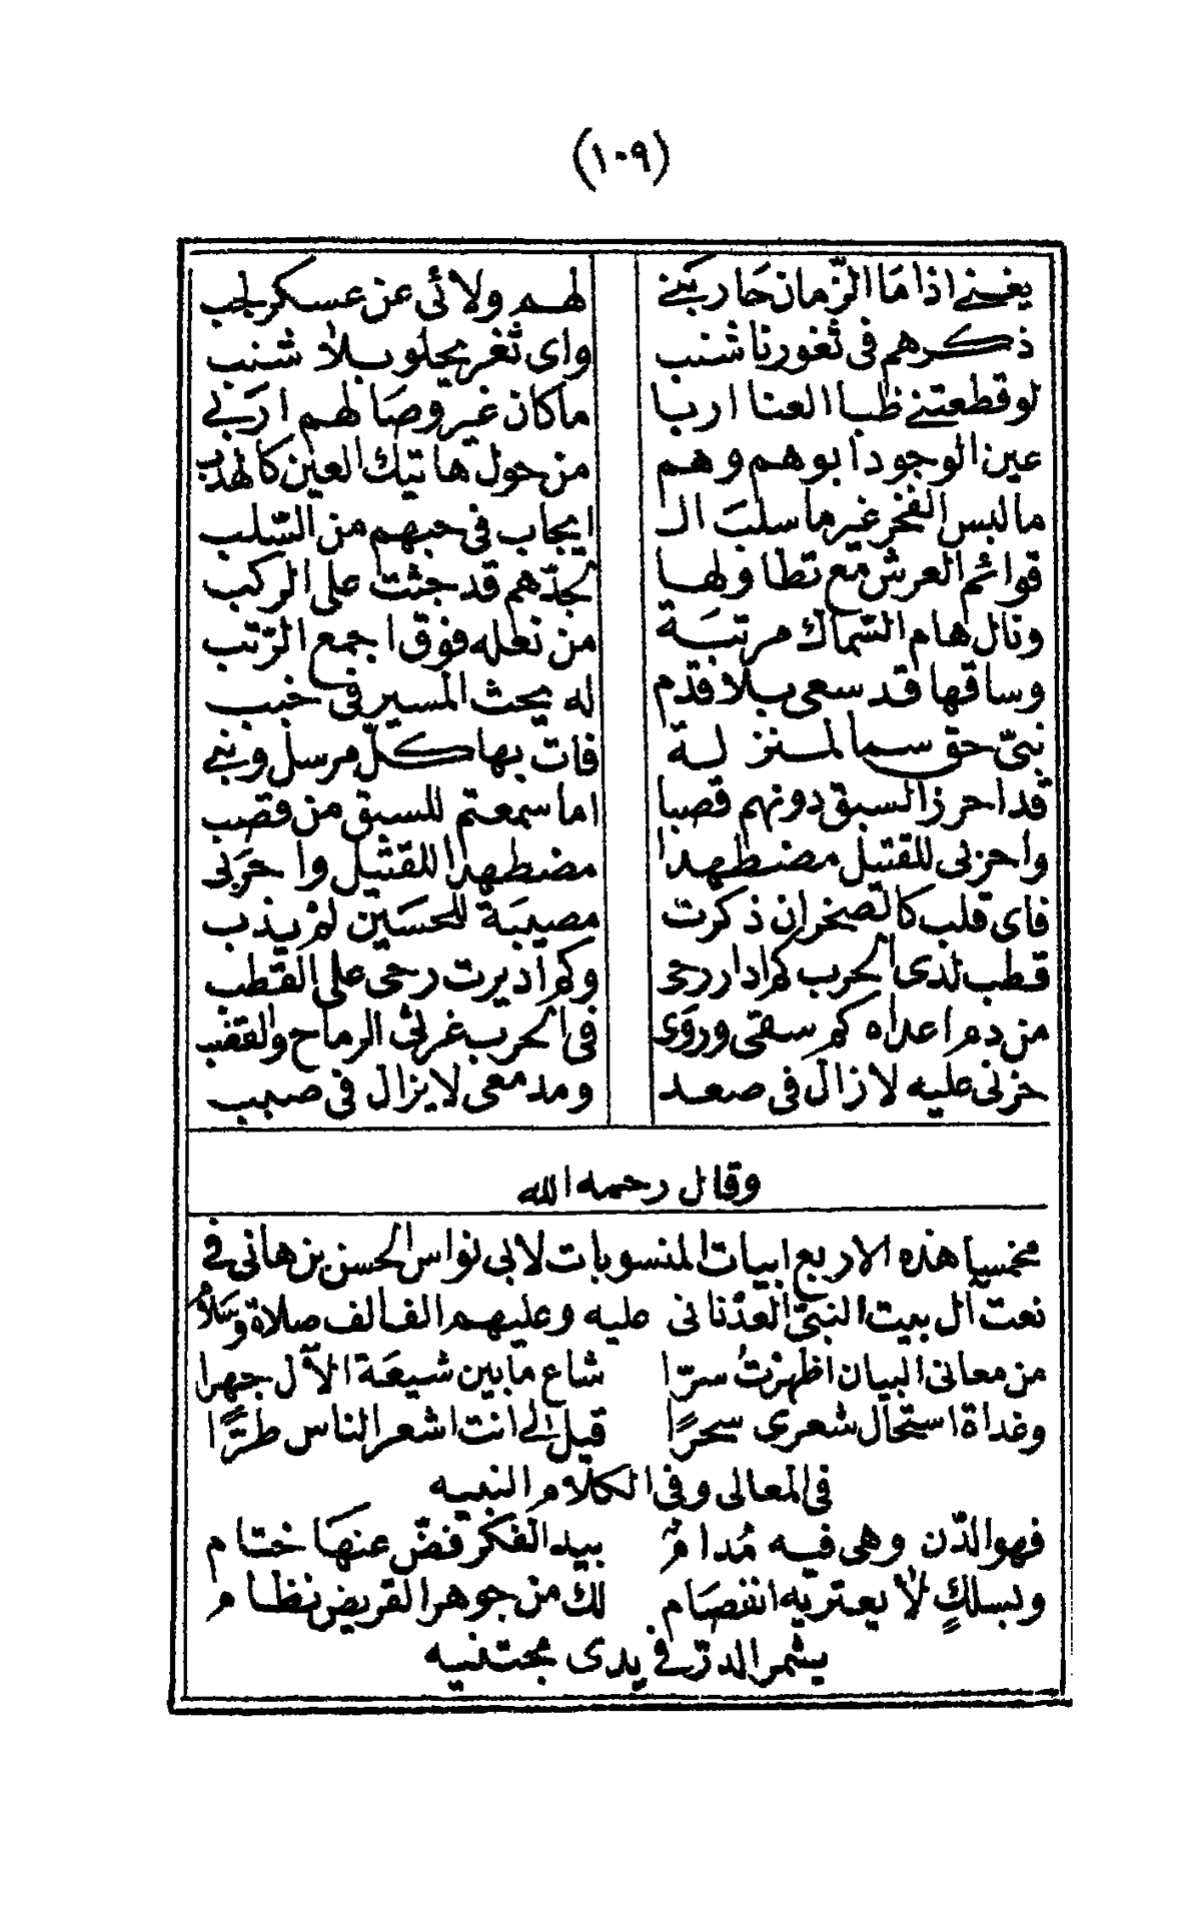 (١٠٩)
يغنني اذا ما الزّمان حاربني لهم ولائى عن عسكر لجب
ذكرهم فى ثغورنا شنب واى ثغر يحلو بلا شنب
لو قطعتني ظبا العنا اربا ما كان غير وصالهم اربي
عين الوجود ابوهم وهم من حول هاتيك العين كالهدب
ما لبس الفخر غير ما سلب ال ايجاب فى حبهم من السّلب
قوائم العرش مع تطاولها لجدّهم قد جثت على الركب
ونال هام السّماك مرتبة من نعله فوق اجمع الرّتب
وساقها قد سعى بلا قدم له يحث المسير فى خبب
نبىّ حق سما لمنزلة فات بها كلّ مرسل ونبي
قد احرز السبق دونهم قصبا اما سمعتم للسبق من قصب
واحزنى للقتيل مضطهدا مضطهدا للقتيل واحربى
فاى قلب كالصخر ان ذكرت مصيبة للحسين لم يذب
قطب لدى الحرب كم ادار رحى وكم اديرت رحى على القطب
من دم اعداه كم سقى وروى فى الحرب غرثى الرماح والقضب
حزنى عليه لا زال فى صعد ومدمعى لا يزال فى صبب
وقال رحمه الله
مخمسا هذه الاربع ابيات المنسوبات لابى نواس الحسن بن هانى في
نعت آل بيت النبىّ العدنانى عليه وعليهم الف الف صلاة وسلام
من معانى البيان اظهرتُ سرّا شاع ما بين شيعة الآل جهرا
وغداة استحال شعرى سحرًا قيل لي انت اشعر الناس طرًّا
فى المعالى وفى الكلام النبيه
فهو الدّن وهى فيه مُدامٌ بيد الفكر فضّ عنها ختام
وبسلكٍ لا يعتريه انفصام لك من جوهر القريض نظام
يثمر الدرّ في يدى مجتنيه